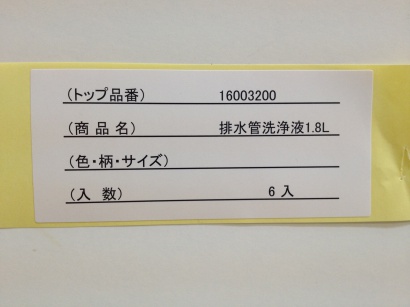 (トップ品番) 16003200
(商品名) 排水管洗浄液1.8L
(色・柄・サイズ)
(入数) 6入